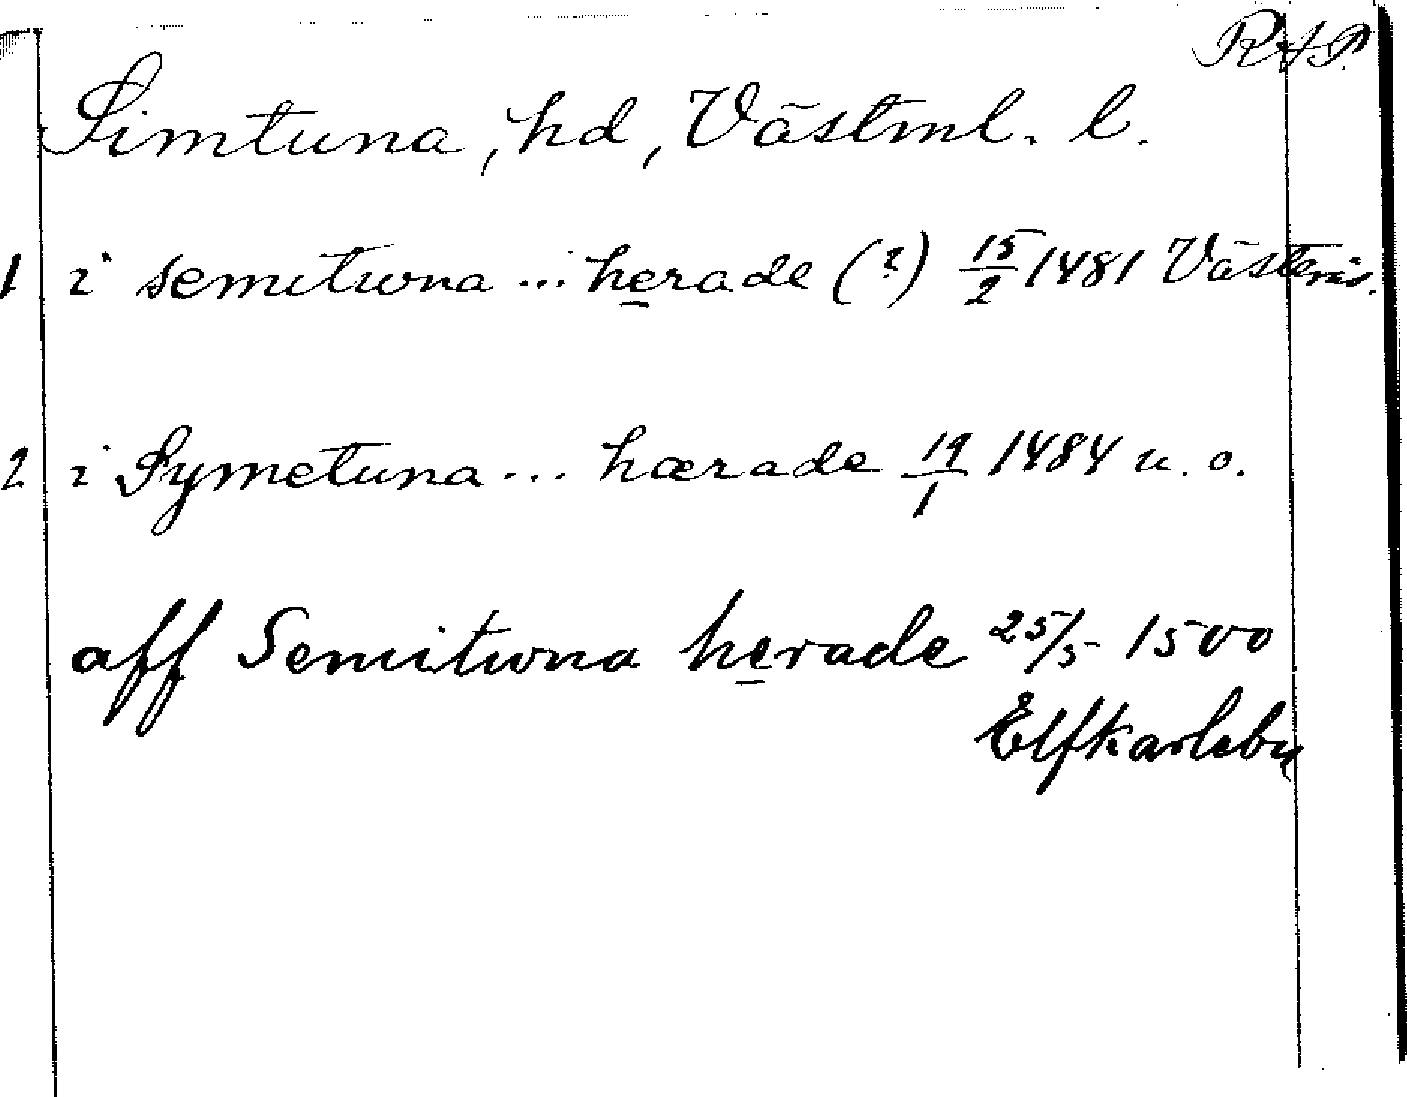 RAP.
Simtuna, hd, Västml. l.
1 i semitwna ... herade (?) 15/2 1481 Västerås.
2 i Symetuna ... hærade 19/1 1484 u. o.
aff Semitwna herade 25/5 1500
Elfkarleby